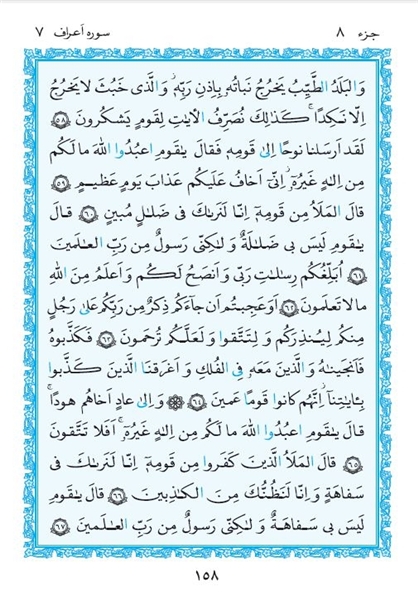 جزء ۸ سوره اعراف ۷
وَالبَلَدُ الطَّيِّبُ يَخرُجُ نَباتُهُ بِاِذنِ رَبِّهِ وَالَّذى خَبُثَ لا يَخرُجُ
اِلّا نَكِدًا كَذٰلِكَ نُصَرِّفُ الأٓيٰتِ لِقَومٍ يَشكُرونَ ﴿۵۸﴾
لَقَد اَرسَلنا نوحًا اِلىٰ قَومِهِ فَقالَ يٰقَومِ اعبُدُوا اللهَ ما لَكُم
مِن اِلٰهٍ غَيرُهُ اِنّى اَخافُ عَلَيكُم عَذابَ يَومٍ عَظيمٍ ﴿۵۹﴾
قالَ المَلَاُ مِن قَومِهِ اِنّا لَنَرىٰكَ فى ضَلٰلٍ مُبينٍ ﴿۶۰﴾ قالَ
يٰقَومِ لَيسَ بى ضَلٰلَةٌ وَ لٰكِنّى رَسولٌ مِن رَبِّ العٰلَمينَ
﴿۶۱﴾ اُبَلِّغُكُم رِسٰلٰتِ رَبّى وَ اَنصَحُ لَكُم وَ اَعلَمُ مِنَ اللهِ
ما لا تَعلَمونَ ﴿۶۲﴾ اَوَعَجِبتُم اَن جاءَكُم ذِكرٌ مِن رَبِّكُم عَلىٰ رَجُلٍ
مِنكُم لِيُنذِرَكُم وَ لِتَتَّقوا وَ لَعَلَّكُم تُرحَمونَ ﴿۶۳﴾ فَكَذَّبوهُ
فَاَنجَينٰهُ وَ الَّذينَ مَعَهُ فِى الفُلكِ وَ اَغرَقنَا الَّذينَ كَذَّبوا
بِـٔايٰتِنا اِنَّهُم كانوا قَومًا عَمينَ ﴿۶۴﴾ ۞ وَ اِلىٰ عادٍ اَخاهُم هودًا
قالَ يٰقَومِ اعبُدُوا اللهَ ما لَكُم مِن اِلٰهٍ غَيرُهُ اَفَلا تَتَّقونَ
﴿۶۵﴾ قالَ المَلَاُ الَّذينَ كَفَروا مِن قَومِهِ اِنّا لَنَرىٰكَ فى
سَفاهَةٍ وَ اِنّا لَنَظُنُّكَ مِنَ الكٰذِبينَ ﴿۶۶﴾ قالَ يٰقَومِ
لَيسَ بى سَفاهَةٌ وَ لٰكِنّى رَسولٌ مِن رَبِّ العٰلَمينَ ﴿۶۷﴾
۱۵۸